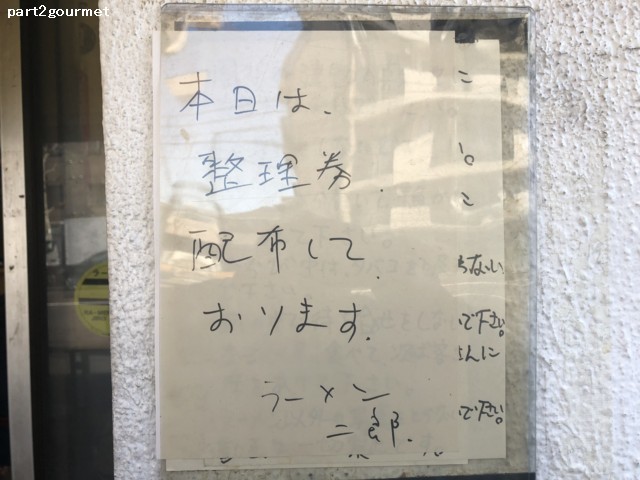 part2gourmet
本日は、
整理券
配布して
おります.
ラーメン
二郎.
こ
い。
こ
らない
で下さい。
さんに
で下さい。